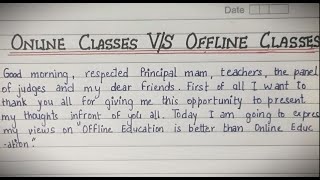 Date
ONLINE CLASSES V/S OFFLINE CLASSES
Good morning, respected Principal mam, teachers, the panel
of judges and my dear friends. First of all I want to
thank you all for giving me this opportunity to present
my thoughts infront of you all. Today I am going to expres
my views on "Offline Education is better than Online Educ
-ation."